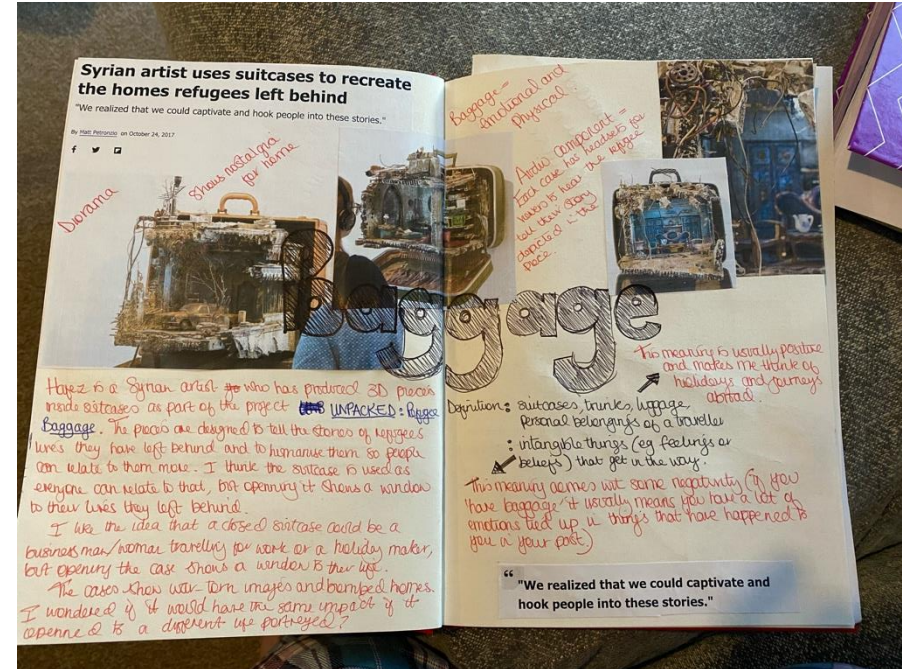 Syrian artist uses suitcases to recreate
the homes refugees left behind
"We realized that we could captivate and
hook people into these stories."
By Matt Petronzio on October 24, 2017
Diorama
Shows nostalgia
for home
Baggage
Hafez is a Syrian artist who has produced 3D pieces
inside suitcases as part of the project UNPACKED: Refugee
Baggage. The pieces are designed to tell the stories of refugees
lives they have left behind and to humanise them so people
can relate to them more. I think the suitcase is used as
everyone can relate to that, but openning it shows a window
to their lives they left behind.
I like the idea that a closed suitcase could be a
business man/woman travelling for work or a holiday maker,
but opening the case shows a window to their life.
The cases show war-torn images and bombed homes.
I wondered if it would have the same impact if it
openned to a different life portrayed?
Baggage =
Emotional and
Physical.
Audio component =
Each case has headsets for
to hear the refugee
tell their story
depicted in the
piece.
This meaning is usually positive
and makes me think of
holidays and journeys
abroad.
Definition: suitcases, trunks, luggage,
personal belongings of a traveller
: intangible things (eg feelings or
beliefs) that get in the way.
This meaning comes wit some negativity (if you
'have baggage' it usually means you have a lot of
emotions tied up in things that have happened to
you in your past)
"We realized that we could captivate and
hook people into these stories."